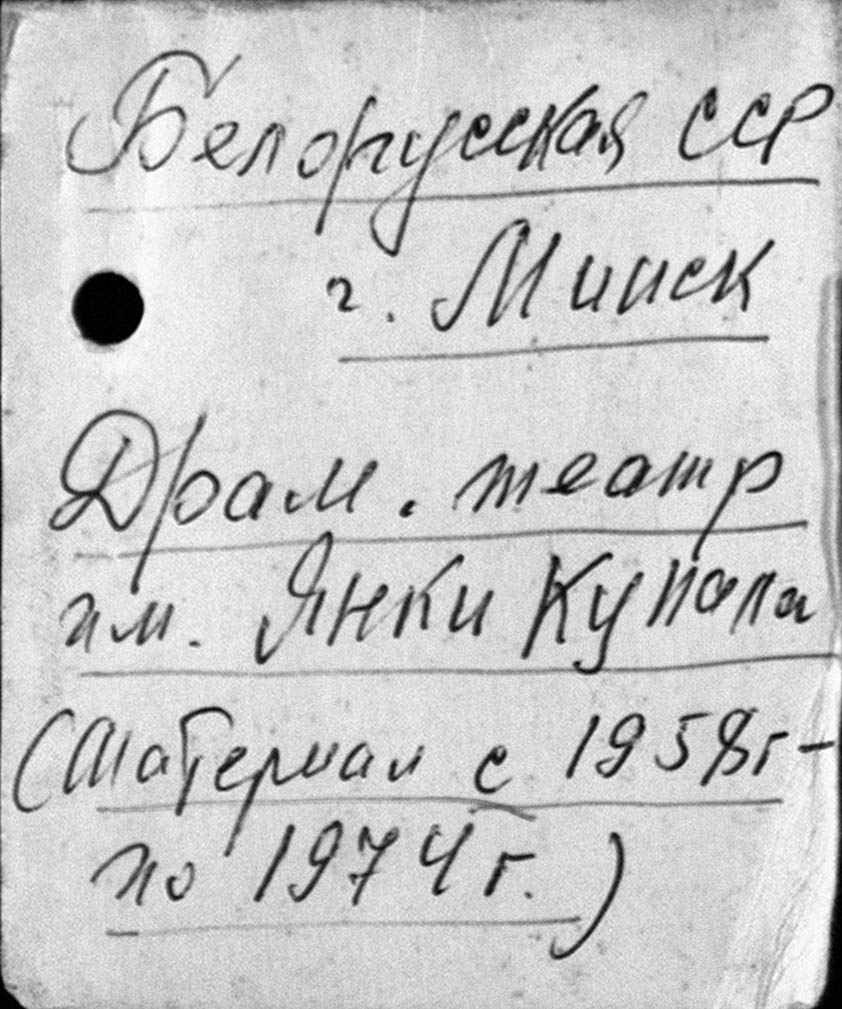 Белорусская ССР
г. Минск
Драм. театр
им. Янки Купала
(Материал с 1958г-
по 1974г.)